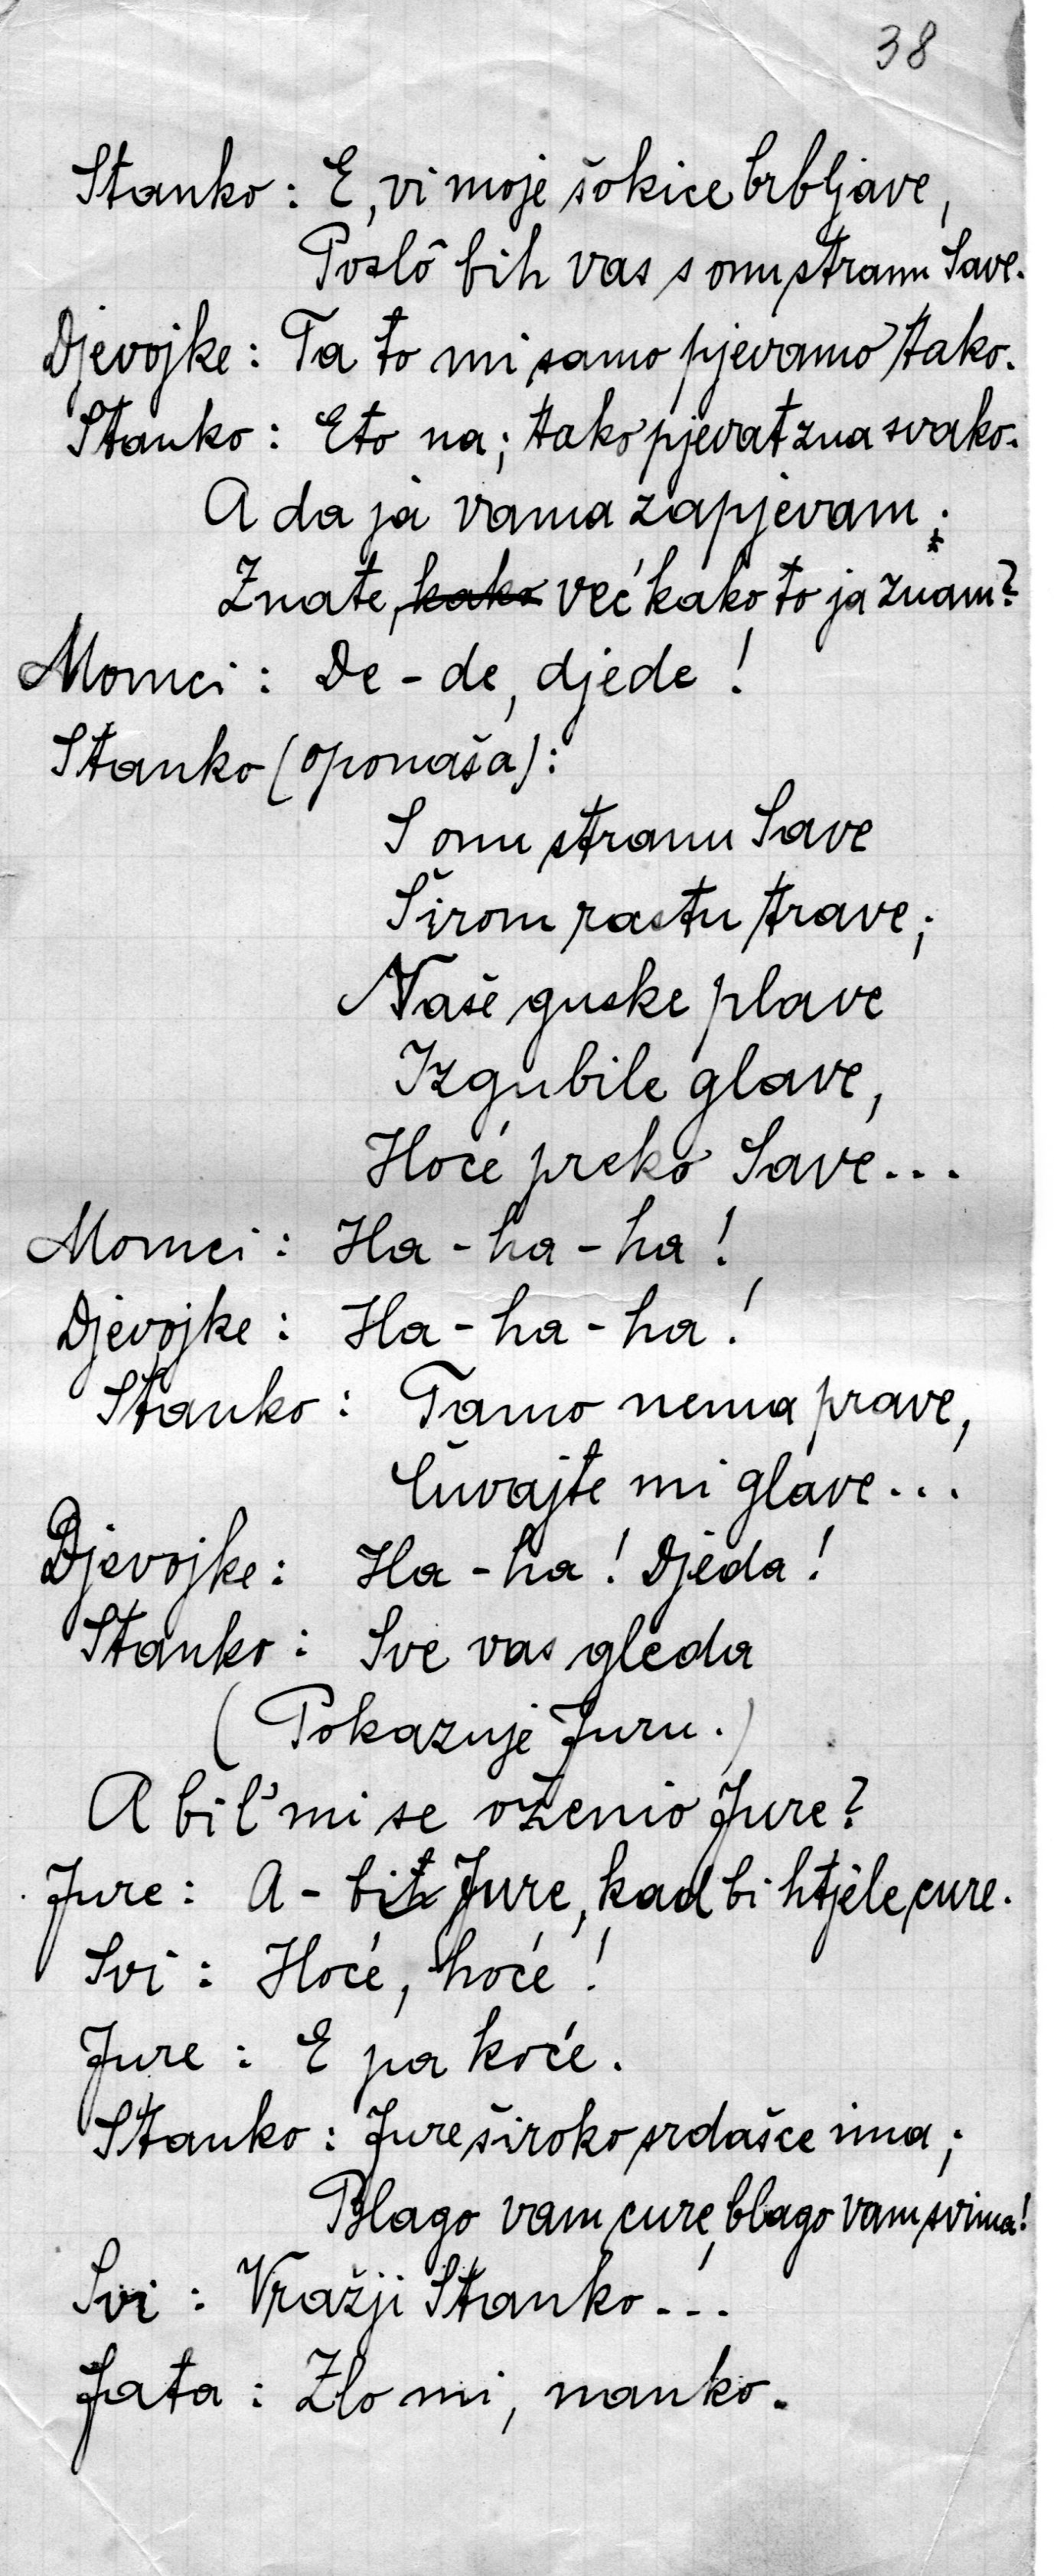 38
Stanko: E, vi moje šokice brbljave,
Poslô bih vas s onu stranu Save.
Djevojke: Ta to mi samo pjevamo tako.
Stanko: Eto na; tako pjevat zna svako.
A da ja vama zapjevam;
Znate, kako već kako to ja znam?
Momci: De-de, djede!
Stanko (oponaša):
S onu stranu Save
Širom rastu trave;
Naše guske plave
Izgubile glave,
Hoće preko Save...
Momci: Ha-ha-ha!
Djevojke: Ha-ha-ha!
Stanko: Tamo nema prave,
Čuvajte mi glave...
Djevojke: Ha-ha! Djeda!
Stanko: Sve vas gleda
(Pokazuje Juru.)
A bil' mi se oženio Jure?
Jure: A - bit Jure, kad bi htjele cure.
Svi: Hoće, hoće!
Jure: E pa koće.
Stanko: Jure široko srdašce ima;
Blago vam cure, blago vam svima!
Svi: Vražji Stanko...!
Jata: Zlo mi, nanko.